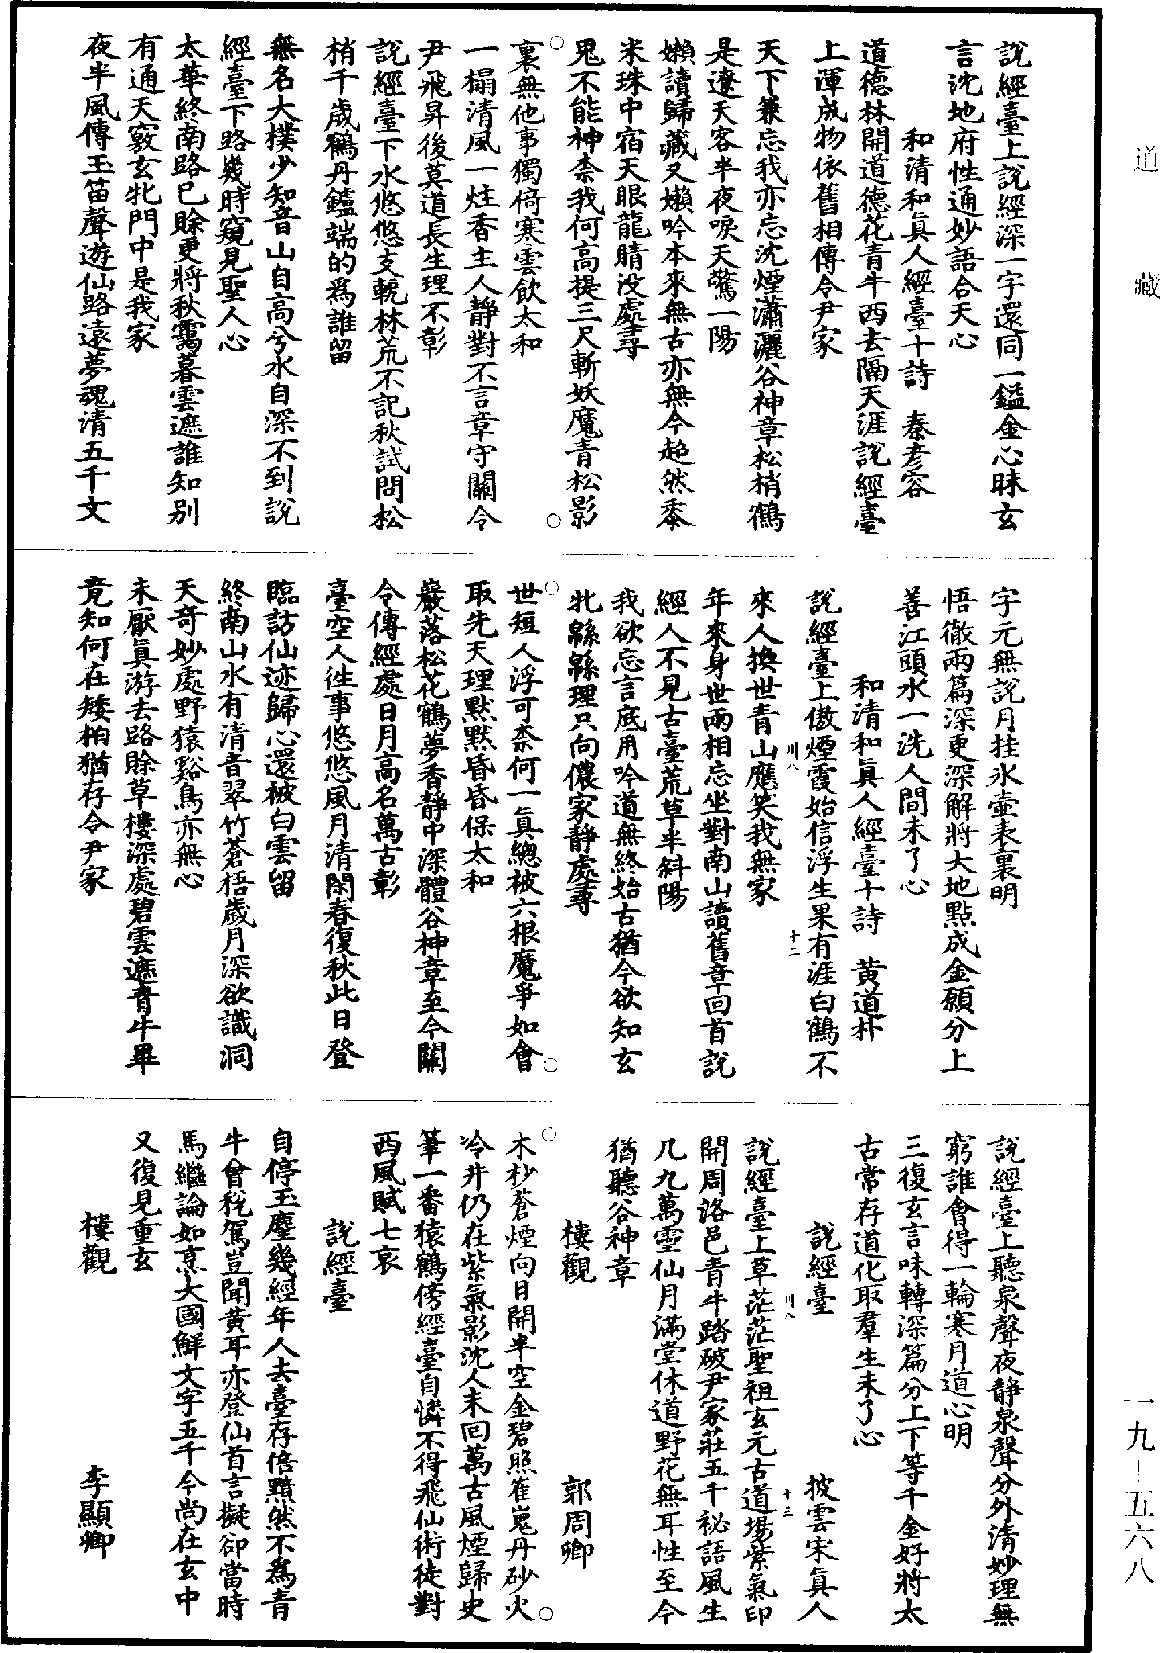 道藏
說經臺上說經深一字還同一鎰金心昧玄
言沈地府性通妙語合天心
和清和眞人經臺十詩　秦彥容
道德林開道德花青牛西去隔天涯說經臺
上渾成物依舊相傳令尹家
天下兼忘我亦忘沈煙瀟灑谷神章松梢鶴
是遼天客半夜唳天驚一陽
嬾讀歸藏又嬾吟本來無古亦無今超然黍
米珠中宿天眼龍睛沒處尋
鬼不能神柰我何高提三尺斬妖魔青松影
裏無他事獨倚寒雲飲太和
一榻清風一炷香主人靜對不言章守關令
尹飛昇後莫道長生理不彰
說經臺下水悠悠支輗林荒不記秋試問松
梢千歲鶴丹鑪端的爲誰留
無名大樸少知音山自高兮水自深不到說
經臺下路幾時窺見聖人心
太華終南路已賒更將秋靄暮雲遮誰知別
有通天竅玄牝門中是我家
夜半風傳玉笛聲遊仙路遠夢魂清五千文
字元無說月挂冰壺表裏明
悟徹兩篇深更深解將大地點成金願分上
善江頭水一洗人間未了心
和清和眞人經臺十詩　黄道朴
說經臺上傲煙霞始信浮生果有涯白鶴不
來人換世青山應笑我無家
川八　十二
年來身世兩相忘坐對南山讀舊章回首說
經人不見古臺荒草半斜陽
我欲忘言底用吟道無終始古猶今欲知玄
牝緜緜理只向儂家靜處尋
世短人浮可柰何一眞總被六根魔爭如會
取先天理默默昏昏保太和
巖落松花鶴夢香靜中深體谷神章至今關
令傳經處日月高名萬古彰
臺空人徃事悠悠風月清閑春復秋此日登
臨訪仙迹歸心還被白雲留
終南山水有清音翠竹蒼梧歲月深欲識洞
天奇妙處野猿谿鳥亦無心
未厭眞游去路賒草樓深處碧雲遮青牛畢
竟知何在矮柏猶存令尹家
說經臺上聽泉聲夜靜泉聲分外清妙理無
窮誰會得一輪寒月道心明
三復玄言味轉深篇分上下等千金好將太
古常存道化取羣生未了心
說經臺　披雲宋眞人
川八　十三
說經臺上草茫茫聖祖玄元古道場紫氣印
開周洛邑青牛踏破尹家莊五千祕語風生
几九萬靈仙月滿堂休道野花無耳性至今
猶聽谷神章
樓觀　郭周卿
木杪蒼煙向日開半空金碧照崔嵬丹砂火
冷井仍在紫氣影沈人未回萬古風煙歸史
筆一番猿鶴傍經臺自憐不得飛仙術徒對
西風賦七哀
說經臺
自停玉塵幾經年人去臺存倍黯然不爲青
牛曾稅駕豈聞黄耳亦登仙首言擬卻當時
馬繼論如烹大國鮮文字五千今尚在玄中
又復見重玄
樓觀　李顯卿
一九-五六八